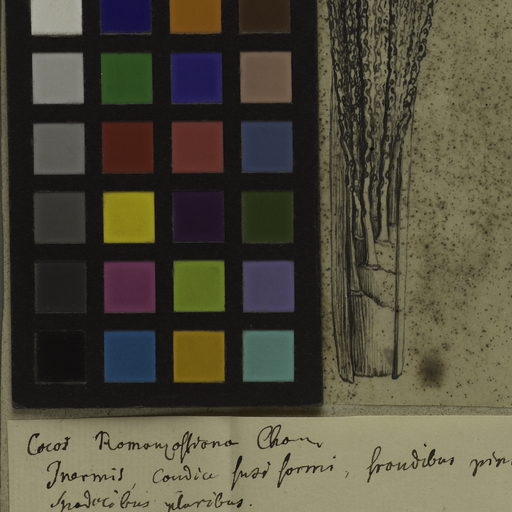 Cocos Romanzoffiana Cham
Inermis, Caudice fusi formi, frondibus pin
Spadicibus pluribus.